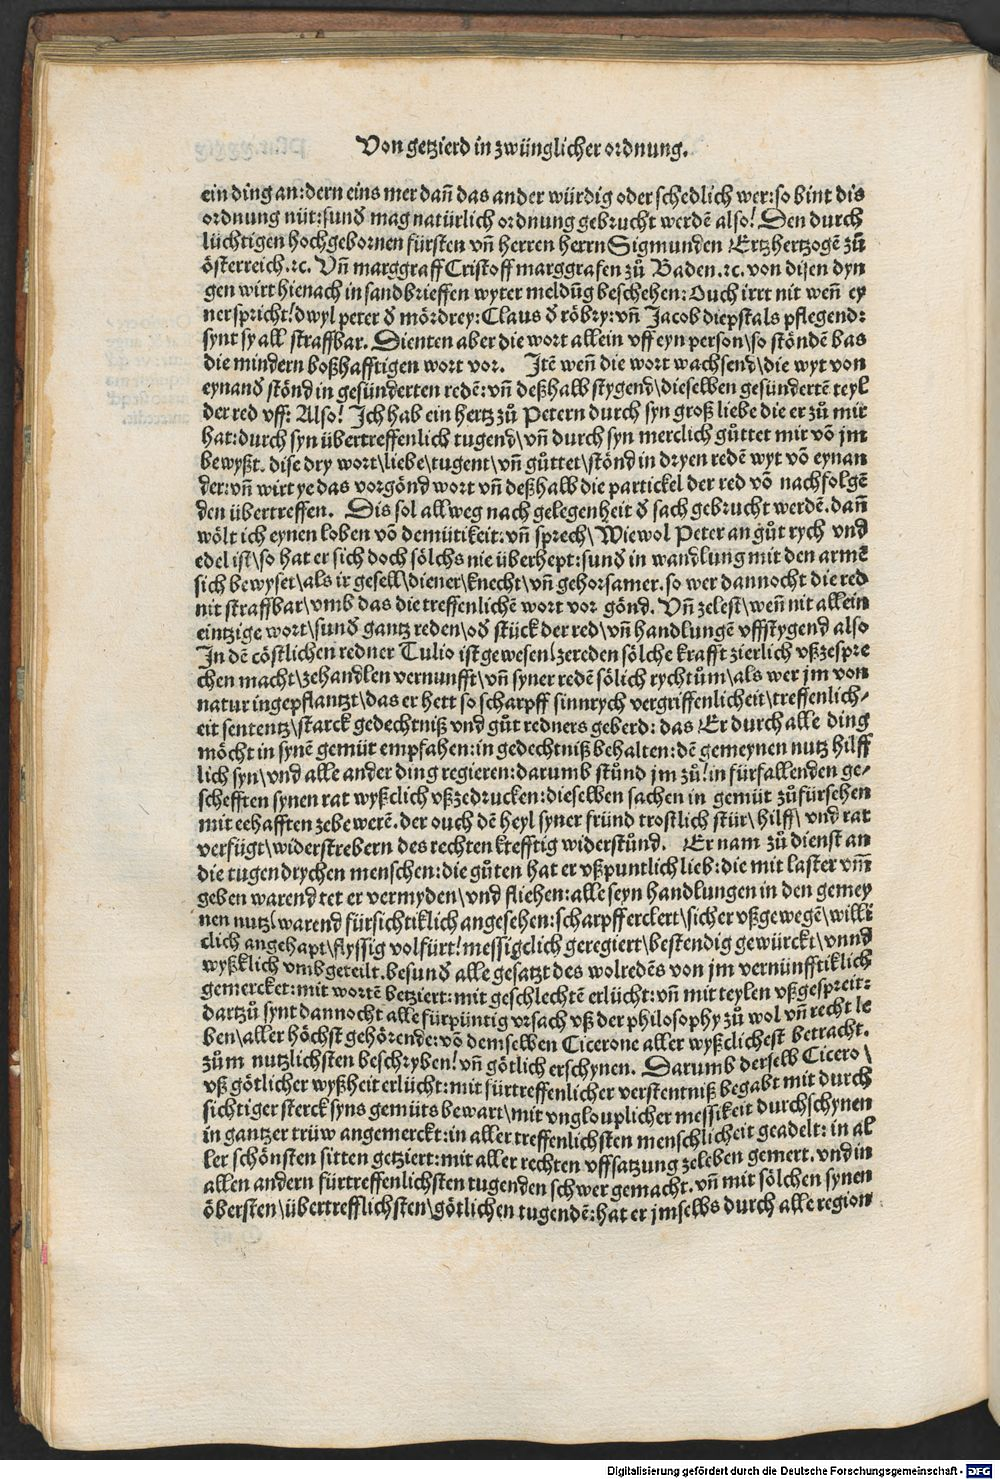 Von getzierd in zwünglicher ordnung.
ein ding an: dern eins mer dañ das ander würdig oder schedlich wer: so bint dis
ordnung nüt: sund̄ mag natürlich ordnung gebrucht werdē also! Den durch
lüchtigen hochgebornen fürsten vñ herren herrn Sigmunden Ertzhertzogē zů
österreich.ꝛc. Vñ marggraff Cristoff marggrafen zů Baden.ꝛc. von disen dyn
gen wirt hienach in sandbrieffen wyter meldũg beschehen: Ouch irrt nit weñ ey
ner spricht! dwyl peter d̄ mördrey: Claus d̄ röbry: vñ Jacob diepstals pflegend:
synt sy all straffbar. Dienten aber die wort allein vff eyn person\so stöndē bas
die mindern boßhafftigen wort vor. Itē weñ die wort wachsend\die wyt von
eynand̄ stönd in gesünderten redē: vñ deßhalb stygend\dieselben gesündertē teyl
der red vff: Also! Ich hab ein hertz zů Petern durch syn groß liebe die er zů mir
hat: durch syn übertreffenlich tugend\vñ durch syn merclich gůttet mir vō jm
bewyßt. dise dry wort\liebe\tugent\vñ gůttet\stönd in dryen redē wyt vō eynan
der: vñ wirt ye das vorgönd wort vñ deßhalb die partickel der red vō nachfolgē
den übertreffen. Dis sol allweg nach gelegenheit d̄ sach gebrucht werdē. dañ
wölt ich eynen loben vō demütikeit: vñ sprech\Wiewol Peter an gůt rych vnd
edel ist\so hat er sich doch sölchs nie überhept: sund̄ in wandlung mit den armē
sich bewyset\als ir gesell\diener\knecht\vñ gehorsamer. so wer dannocht die red
nit straffbar\vmb das die treffenlichē wort vor gönd. Vñ zelest\weñ nit allein
eintzige wort\sund̄ gantz reden\od̄ stück der red\vñ handlungē vffstygend also
In dē cöstlichen redner Tulio ist gewesen(zereden sölche krafft zierlich vßzespre
chen macht\zehandlen vernunfft\vñ syner reden sölich rychtům\als wer jm von
natur ingepflantzt\das er hett so scharpff sinnrych vergriffenlicheit\treffenlich⸗
eit sententz\starck gedechtniß vnd gůt redners geberd: das Er durch alle ding
möcht in synē gemüt empfahen: in gedechtniß behalten: dē gemeynen nutz hilff
lich syn\vnd alle ander ding regieren: darumb stůnd jm zů! in fürfallenden ge⸗
schefften synen rat wyßclich vßzedrucken: dieselben sachen in gemüt zůfürsehen
mit eehafften zebewerē. der ouch dē heyl syner fründ trostlich stür\hilff\vnd rat
verfügt\widerstrebern des rechten krefftig widerstůnd. Er nam zů dienst an
die tugendrychen menschen: die gůten hat er vßpuntlich lieb: die mit laster vm̄
geben warend tet er vermyden\vnd fliehen: alle seyn handlungen in den gemey
nen nutz(warend fürsichtiklich angesehen: scharpff erclert\sicher vßgewegē\willi
clich angehapt\flyssig volfürt! messigclich geregiert\bestendig gewürckt\vnnd
wyßklich vmbgeteilt. besund̄ alle gesatzt des wolredēs von jm vernünfftiklich
gemercket: mit wortē betziert: mit geschlechtē erlücht: vñ mit teylen vßgespreit:
dartzů synt dannocht alle fürpüntig vrsach vß der philosophy zů wol vñ recht le
ben\aller höchst gehörende: vō demselben Cicerone aller wyßclichest betracht.
zům nutzlichsten beschryben! vñ götlich erschynen. Darumb derselb Cicero\
vß götlicher wyßheit erlücht: mit fürtreffenlicher verstentniß begabt mit durch
sichtiger sterck syns gemüts bewart\mit vnglouplicher messikeit durchschynen
in gantzer trüw angemerckt: in aller treffenlichsten menschlicheit geadelt: in al
ler schönsten sitten getziert: mit aller rechten vffsatzung zeleben gemert. vnd in
allen andern fürtreffenlichsten tugenden schwer gemacht. vñ mit sölchen synen
öbersten\übertrefflichsten\götlichen tugendē: hat er jmselbs durch alle region
Digitalisierung gefördert durch die Deutsche Forschungsgemeinschaft - DFG